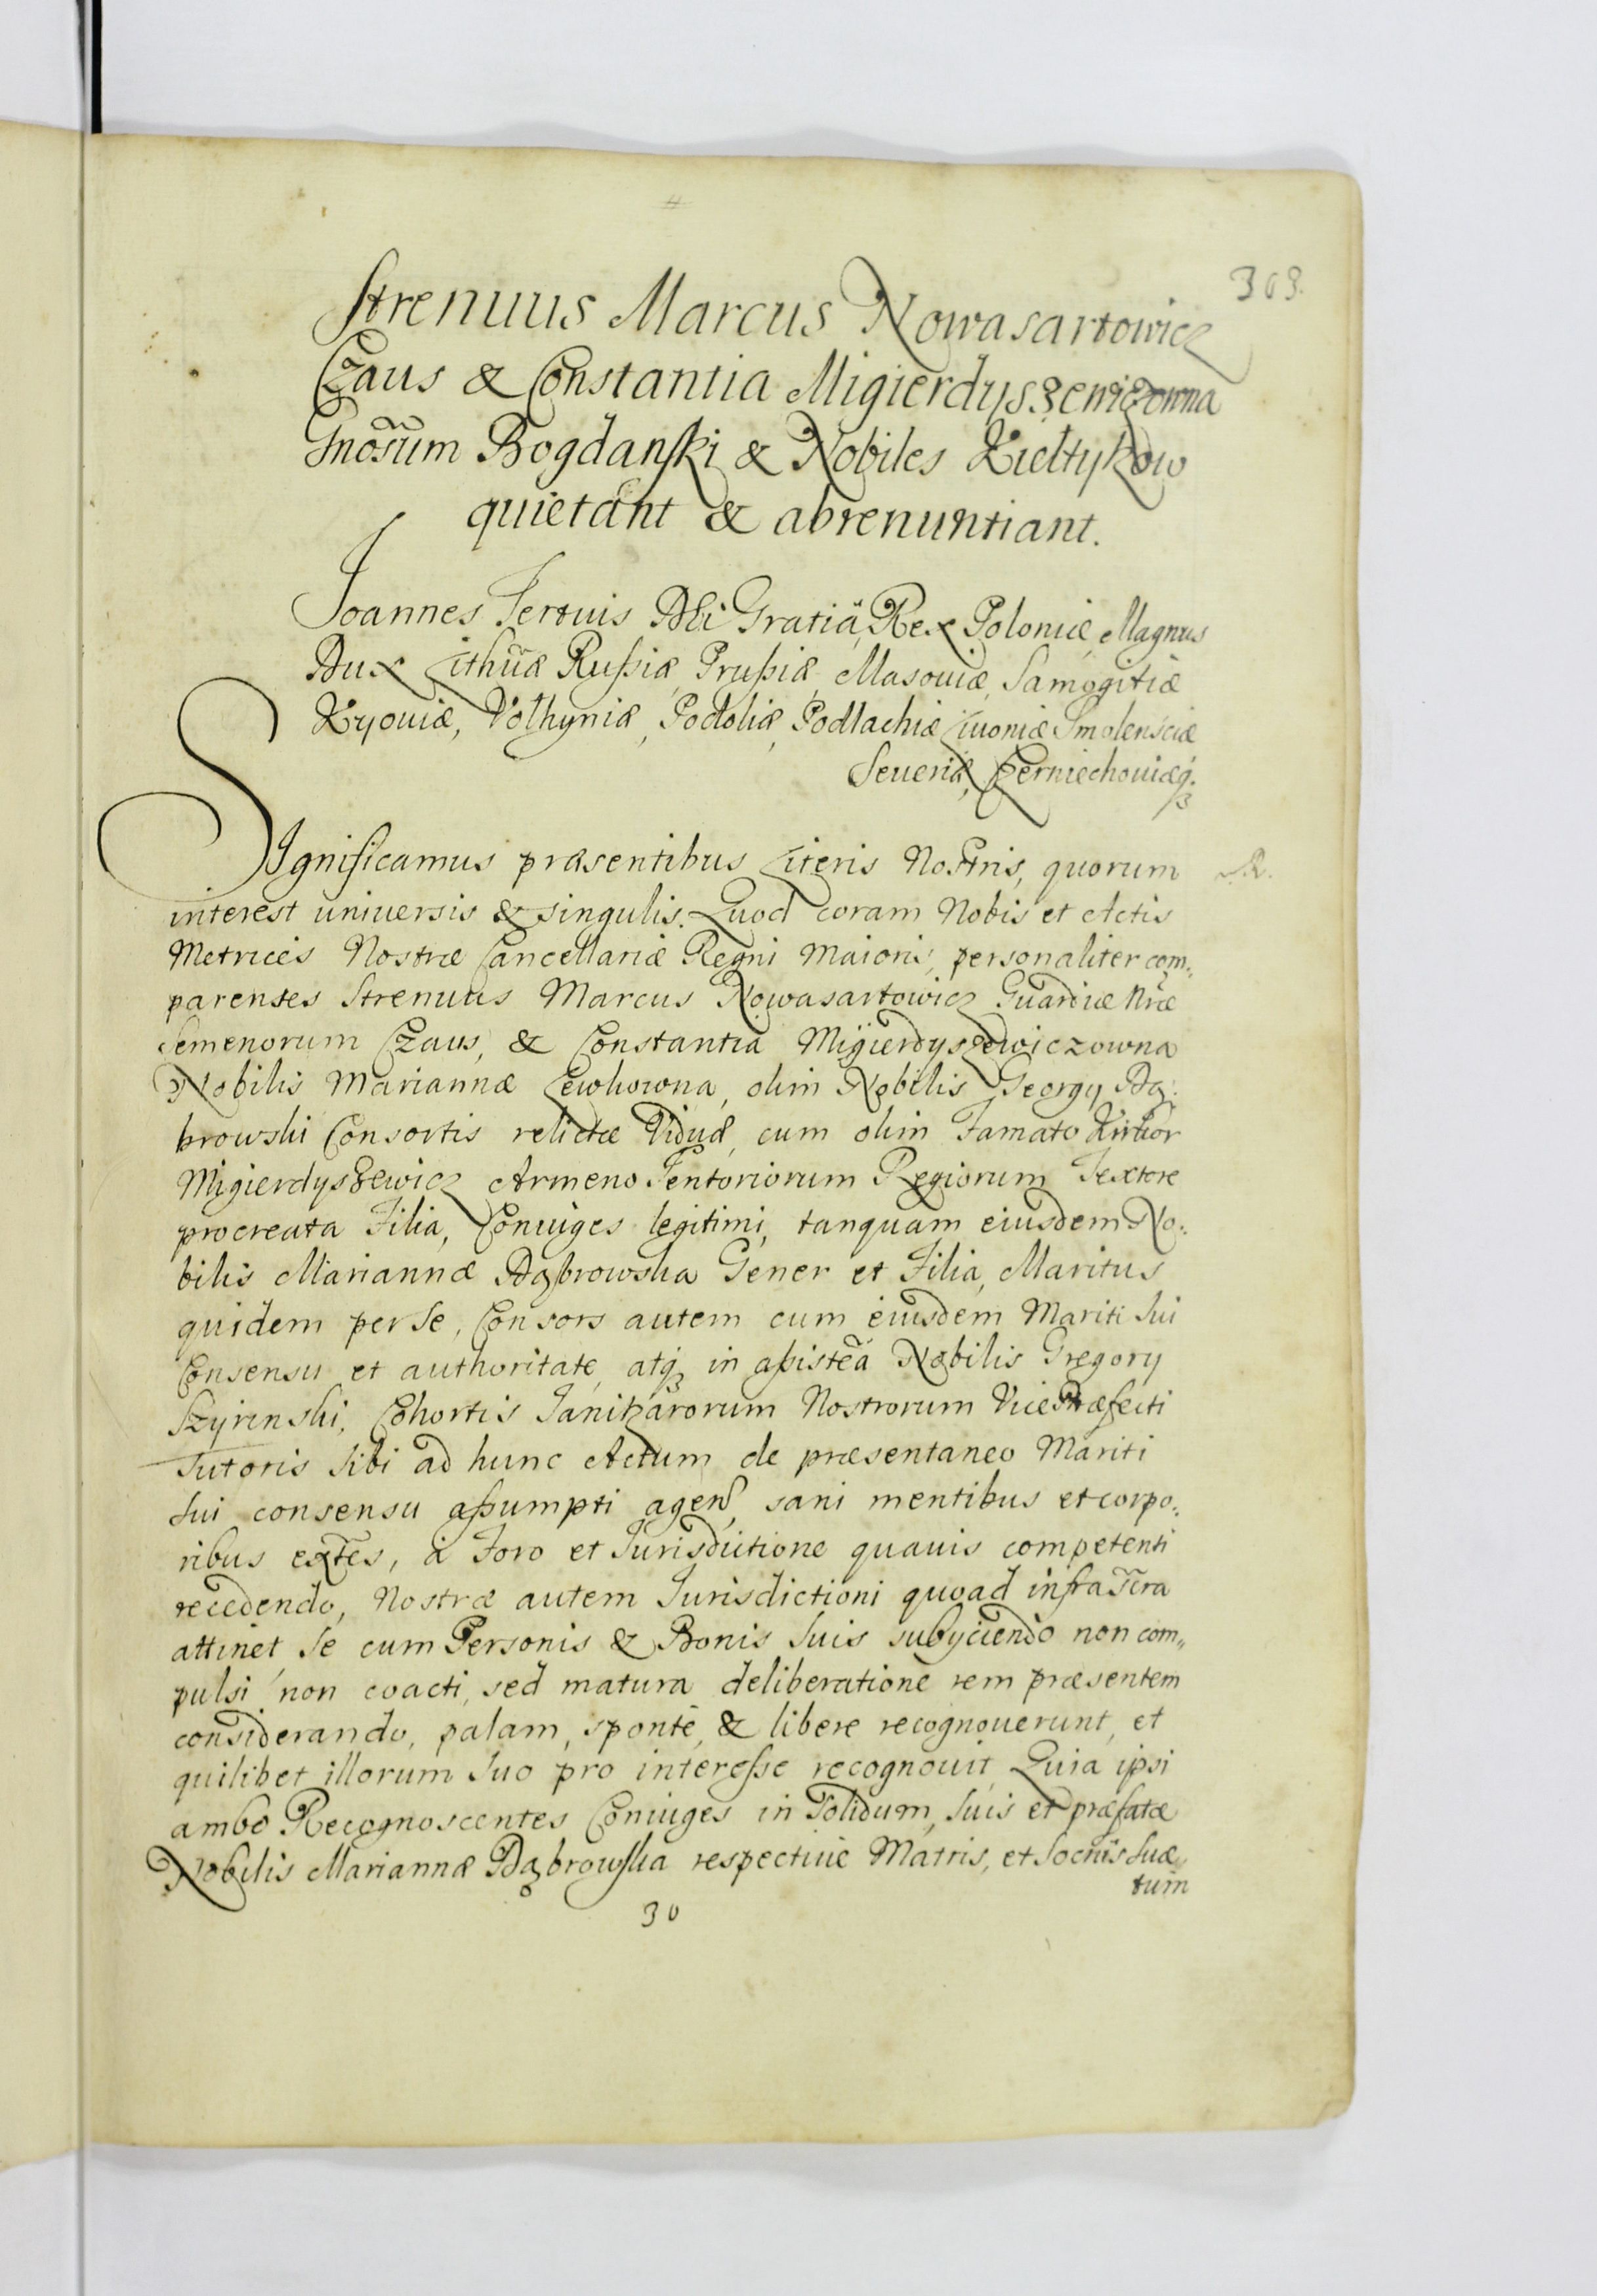 303.
Strenuus Marcus Nowasartowicz
Czaus & Constantia Migierdyszewiczowna
Gnosum Bogdanski & Nobiles Kieltykow
quietant & abrenuntiant.
Joannes Tertius DEi Gratiâ, Rex Poloniæ, Magnus
Dux Lithuæ Rußiæ, Prußiæ, Masouiæ, Samogitiæ
Kyouiæ, Volhyniæ, Podoliæ, Podlachiæ Liuoniæ Smolensciæ
Seueriæ, Czerniechouiæq;
SIgnificamus præsentibus Literis Nostris, quorum
interest uniuersis & singulis. Quod coram Nobis et Actis
Metrices Nostræ Cancellariæ Regni Maioris, personaliter com„
parentes Strenuus Marcus Nowasartowicz Guardiæ Nræ
Semenorum Czaus, & Constantia Migierdyszewiczowna
Nobilis Mariannæ Lewkowna, olim Nobilis Georgy Dą:
browski Consortis relictæ Viduæ, cum olim Famato
Migierdyszewicz Armeno Tentoriorum Regiorum Textore
procreata Filia, Coniuges legitimi, tanquam eiusdem No:
bilis Mariannæ Dąbrowska Gener et Filia, Maritus
quidem per se, Consors autem cum eiusdem Mariti sui
Consensu et authoritate, atq; in aßisteã Nobilis Gregory
Szyrinski, Cohortis Janitzarorum Nostrorum Vice Præfecti
Tutoris sibi ad hunc Actum de præsentaneo Mariti
sui consensu aßumpti agen, sani mentibus et corpo:
ribus exr̃tes, à Foro et Jurisdictione quauis competenti
recedendo, Nostræ autem Jurisdictioni quoad infra Scra
attinet se cum Personis & Bonis suis subyciendo non com„
pulsi non coacti, sed matura deliberatione rem præsentem
considerando, palam, sponte, & libere recognouerunt, et
quilibet illorum suo pro intereße recognouit, Quia ipsi
ambo Recognoscentes Coniuges in Solidum, suis et præfatæ
Nobilis Mariannæ Dąbrowska respectiue Matris, et Socrus suæ,
tum
30